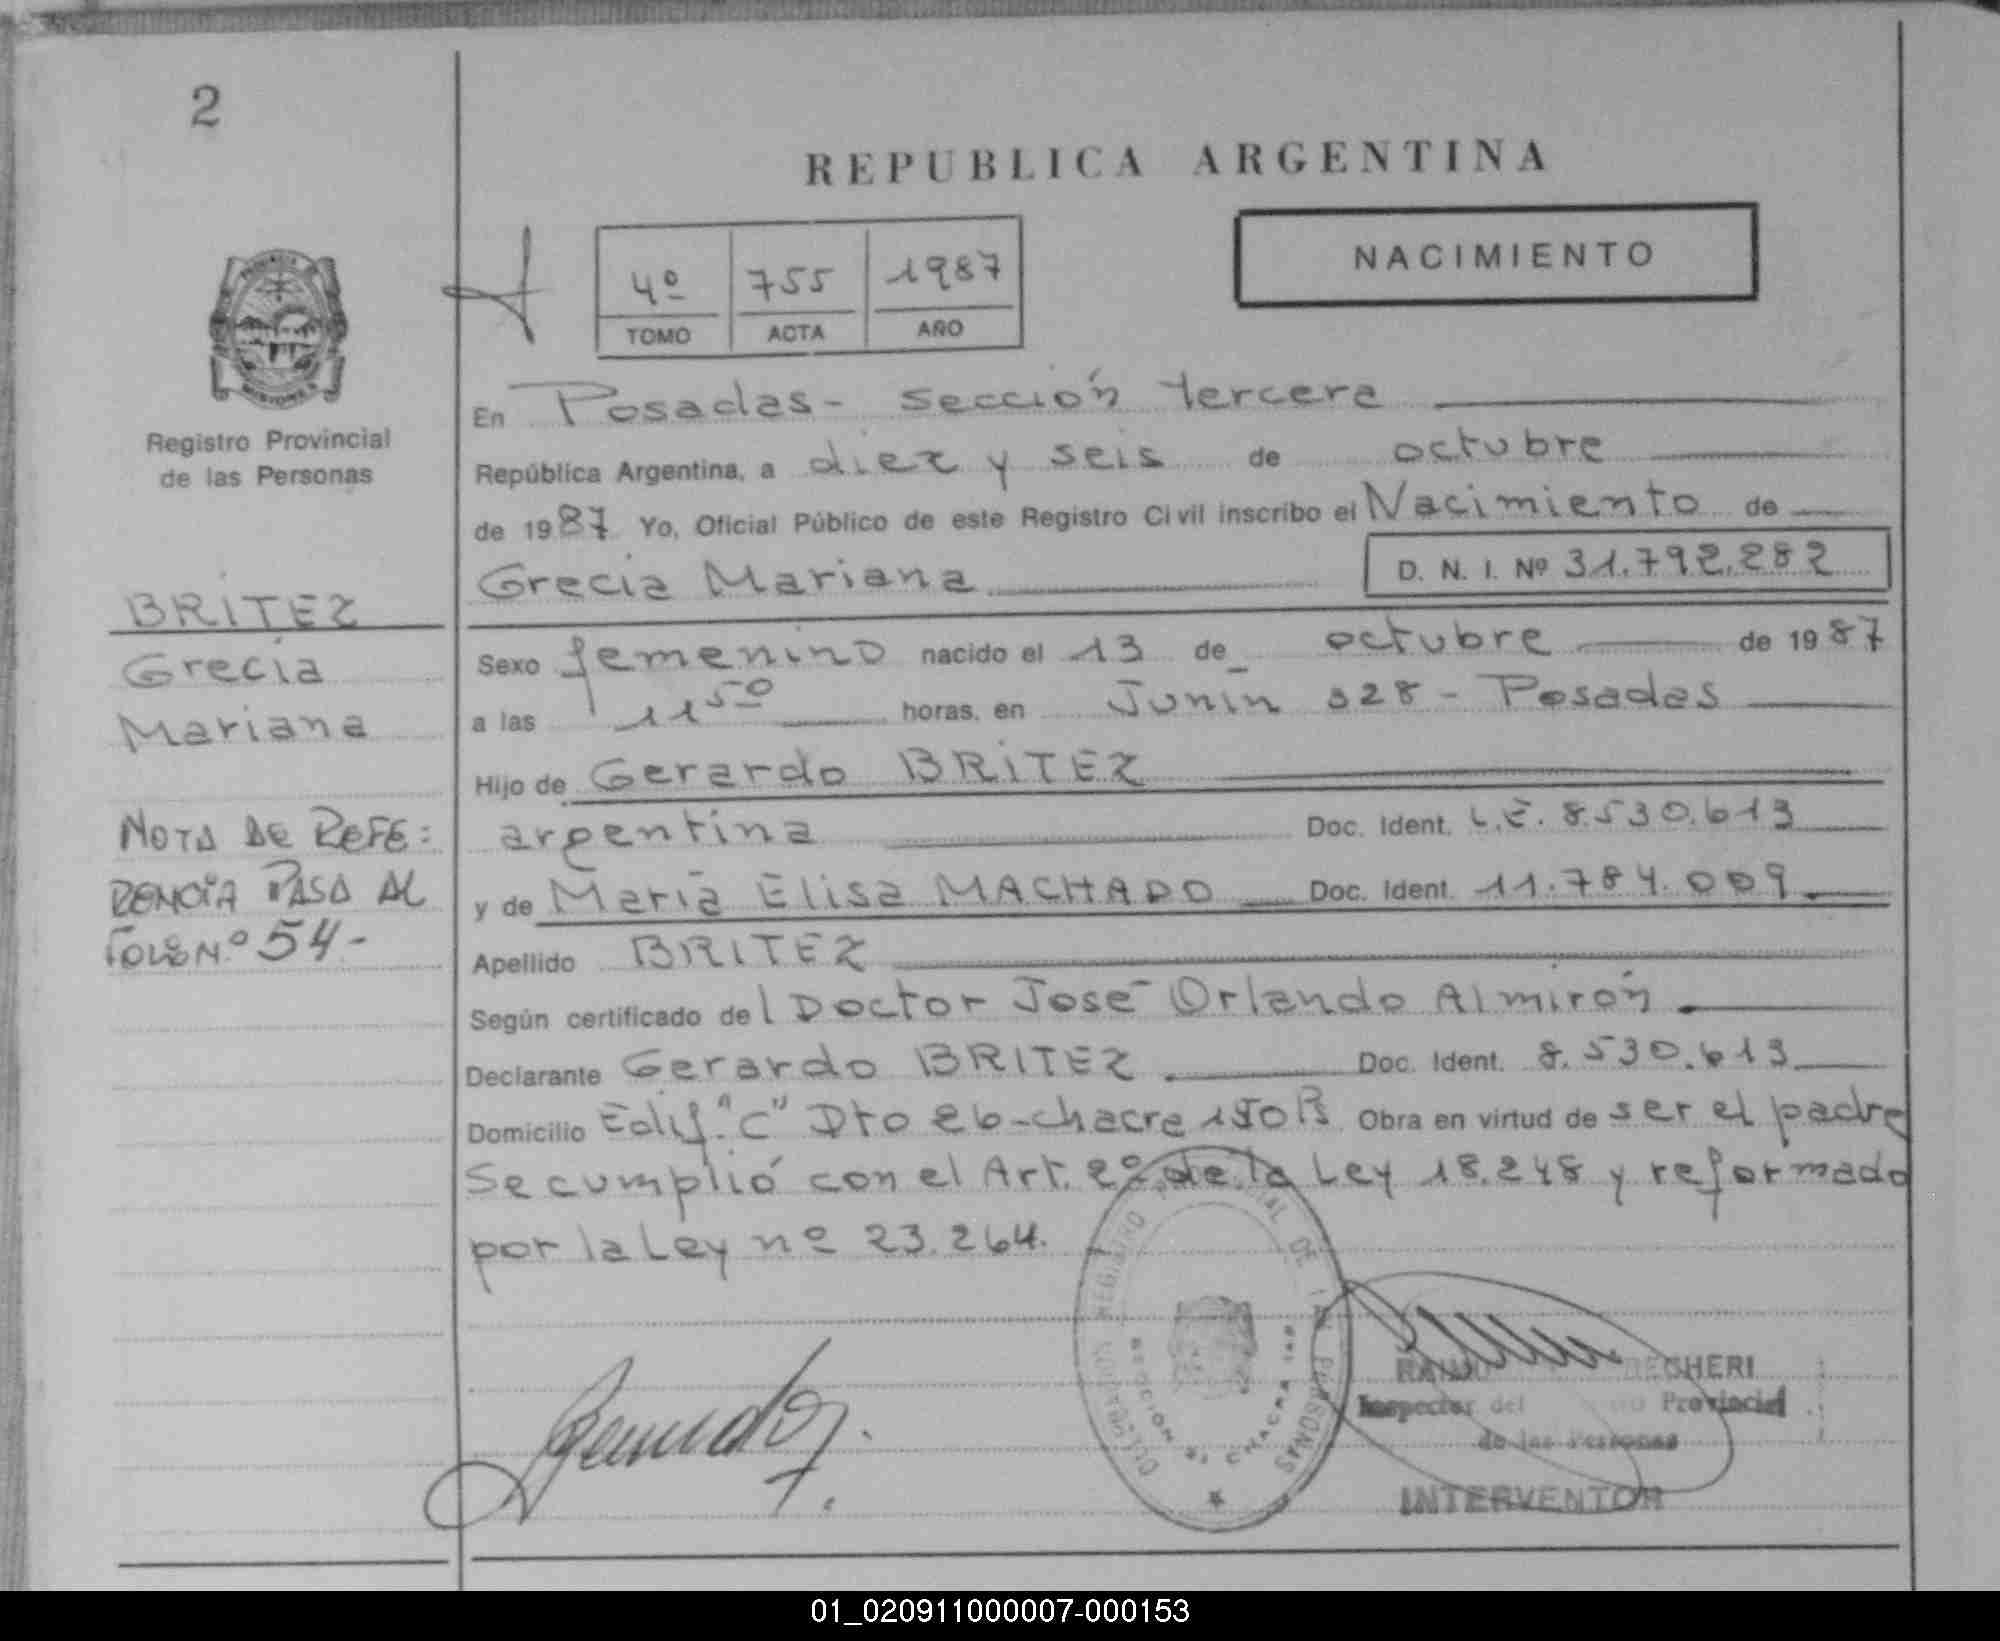 2
REPUBLICA ARGENTINA
4º 755 1987
TOMO ACTA AÑO
NACIMIENTO
Registro Provincial
de las Personas
En Posadas - sección tercera
República Argentina, a diez y seis de octubre
de 1987 Yo, Oficial Público de este Registro Civil inscribo el Nacimiento de
Grecia Mariana D. N. I. Nº 31.792.282
BRITEZ
Grecia
Mariana
Sexo femenino nacido el 13 de octubre de 1987
a las 11 50 horas, en Junín 328 - Posadas
Hijo de Gerardo BRITEZ
argentina Doc. Ident. L.E. 8.530.613
y de María Elisa MACHADO Doc. Ident. 11.784.009
Apellido BRITEZ
NOTA DE REFE=
RENCIA PASA AL
FOLIO Nº 54-
Según certificado del Doctor José Orlando Almirón
Declarante Gerardo BRITEZ Doc. Ident. 8.530.613
Domicilio Edif. "C" Dto 26 - chacra 150 Ps Obra en virtud de ser el padre
Se cumplió con el Art. 2º de la Ley 18.248 y reformado
por la Ley nº 23.264.
REGISTRO PROVINCIAL DE LAS PERSONAS
SECCION 3ª CHACRA
Inspector del Provincial
de las Personas
INTERVENTOR
01_020911000007-000153